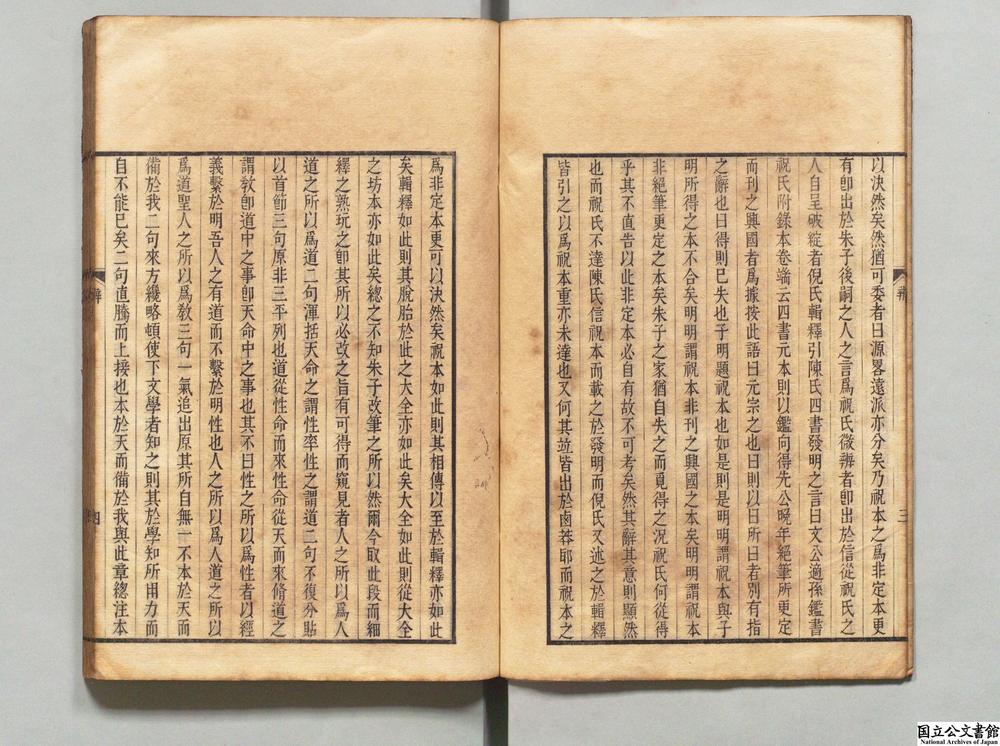 以決然矣然猶可委者曰源畧遠派亦分矣乃祝本之爲非定本更
有卽出於朱子後嗣之人之言爲祝氏微辨者卽出於信從祝氏之
人自呈破綻者倪氏輯釋引陳氏四書發明之言曰文公適孫鑑書
祝氏附錄本卷端云四書元本則以鑑向得先公晚年絕筆所更定
而刊之興國者爲據按此語曰元宗之也曰則以曰所曰者別有指
之辭也曰得則已失也子明題祝本也如是則是明明謂祝本與子
明所得之本不合矣明明謂祝本非刊之興國之本矣明明謂祝本
非絕筆更定之本矣朱子之家猶自失之而覓得之況祝氏何從得
乎其不直告以此非定本必自有故不可考矣然其辭其意則顯然
也而祝氏不達陳氏信祝本而載之於發明而倪氏又述之於輯釋
皆引之以爲祝本重亦未達也又何其並皆出於鹵莽耶而祝本之
爲非定本更可以決然矣祝本如此則其相傳以至於輯釋亦如此
矣輯釋如此則其脫胎於此之大全亦如此矣大全如此則從大全
之坊本亦如此矣總之不知朱子改筆之所以然爾今取此段而細
釋之熟玩之卽其所以必改之旨有可得而窺見者人之所以爲人
道之所以爲道二句渾括天命之謂性率性之謂道二句不復分貼
以首節三句原非三平列也道從性命而來性命從天而來脩道之
謂敎卽道中之事卽天命中之事也其不曰性之所以爲性者以經
義繫於明吾人之有道而不繫於明性也人之所以爲人道之所以
爲道聖人之所以爲敎三句一氣追出原其所自無一不本於天而
備於我二句來方纔略頓使下文學者知之則其於學知所用力而
自不能已矣二句直騰而上接也本於天而備於我與此章總注本
辨
三
辨
四
国立公文書館
National Archives of Japan